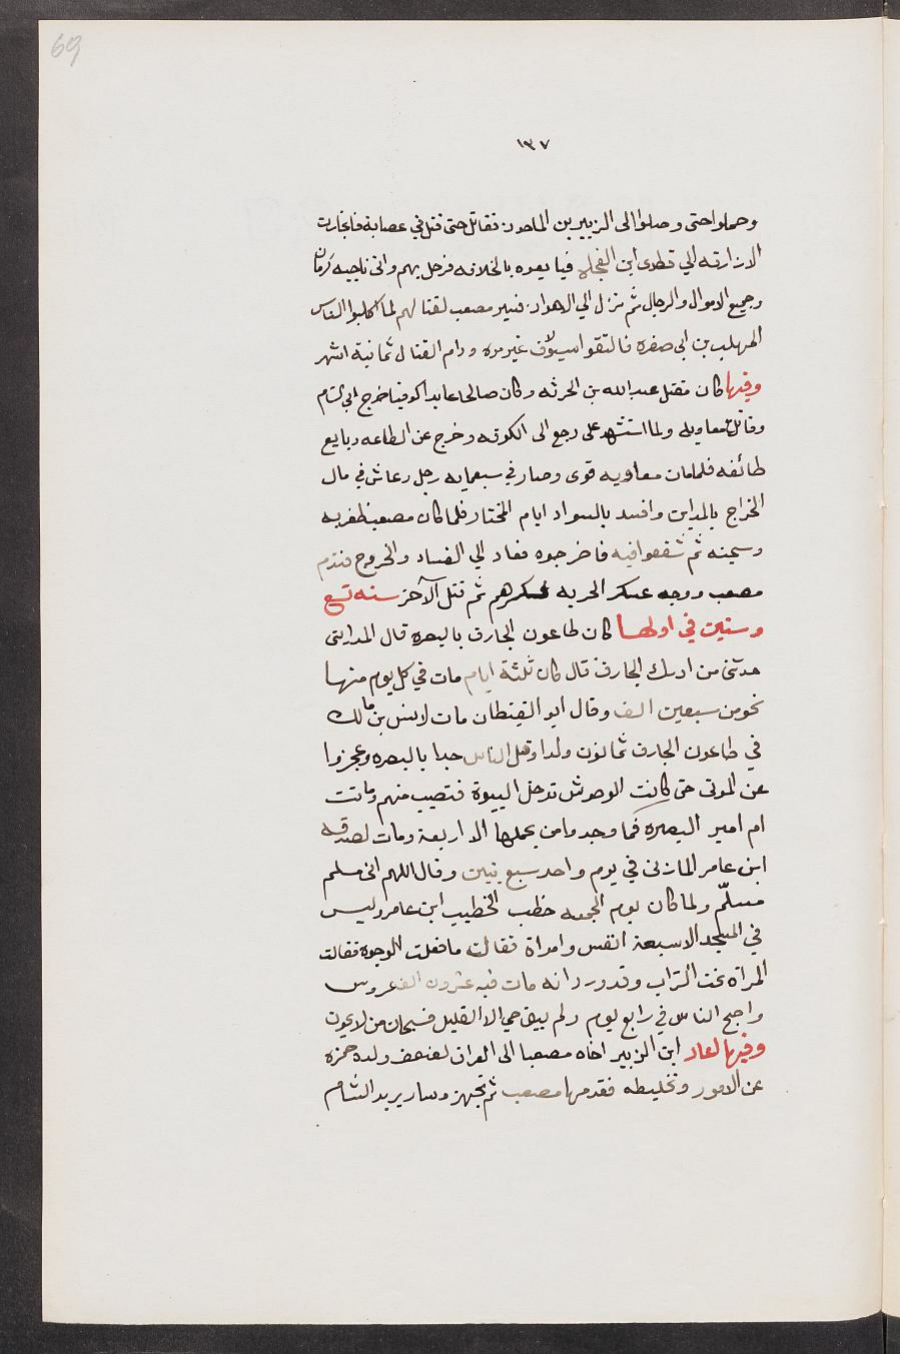 69
١٣٧
وحملوا حتى وصلوا الى الزبير بن الماحوز فقاتل حتى قتل في عصابة فانحازت
الازارقه الي قطرى ابن الفجاه فبايعوه بالخلافه فرحل بهم واتى ناحيه كرمان
وجميع الاموال والرجال ثم نزل الي الاهواز فسير مصعب لقتالهم لما اكلبوا الناس
المهلب بن ابى صفره فالتقوا بسولاف غير مره ودام القتال ثمانية اشهر
وفيها كان مقتل عبد الله بن الحر وكان صالحا عابدا كوفيا خرج الى الشام
وقاتل معاويه ولما استشهد على رجع الى الكوفه وخرج عن الطاعه وبايع
طائفه فلما مات معاويه قوى وصار في سبعمايه رجل وعاش في مال
الخراج بالمداين وافسد بالسواد ايام المختار فلما كان مصعب ظفر به
وسجنه ثم شفعوا فيه فاخرجوه فعاد الي الفساد والخروج فندم
مصعب ووجه عسكر الحربه فكسرهم ثم قتل الآخر سنه تسع
وستين في اولها كان طاعون الجارف بالبصره قال المداينى
حدثنى من ادرك الجارف قال كان ثلثة ايام مات في كل يوم منها
نحو من سبعين الف وقال ابو اليقظان مات لانس بن مالك
في طاعون الجارف ثمانون ولدا وقل الناس جدا بالبصره وعجزوا
عن الموتى حتى كانت الوحوش تدخل البيوة فتصيب منهم وماتت
ام امير البصره فما وجدوا من يحملها الا اربعة ومات لصدقه
ابن عامر المازنى في يوم واحد سبع بنين وقال اللهم انى مسلم
مسلّم ولما كان يوم الجمعه خطب الخطيب ابن عامر وليس
في المسجد الا سبعة انفس وامراة فقالت ما فعلت الوجوه فقالت
المراه تحت التراب وقد ورد انه مات فيه عشرون الف عروس
واصبح الناس في رابع يوم ولم يبق حي الا القليل فسبحان من لا يموت
وفيها اعاد ابن الزبير اخاه مصعبا الى العراق لضعف ولده حمزه
عن الامور وتخليطه فقدمها مصعب ثم تجهز وسار يريد الشام